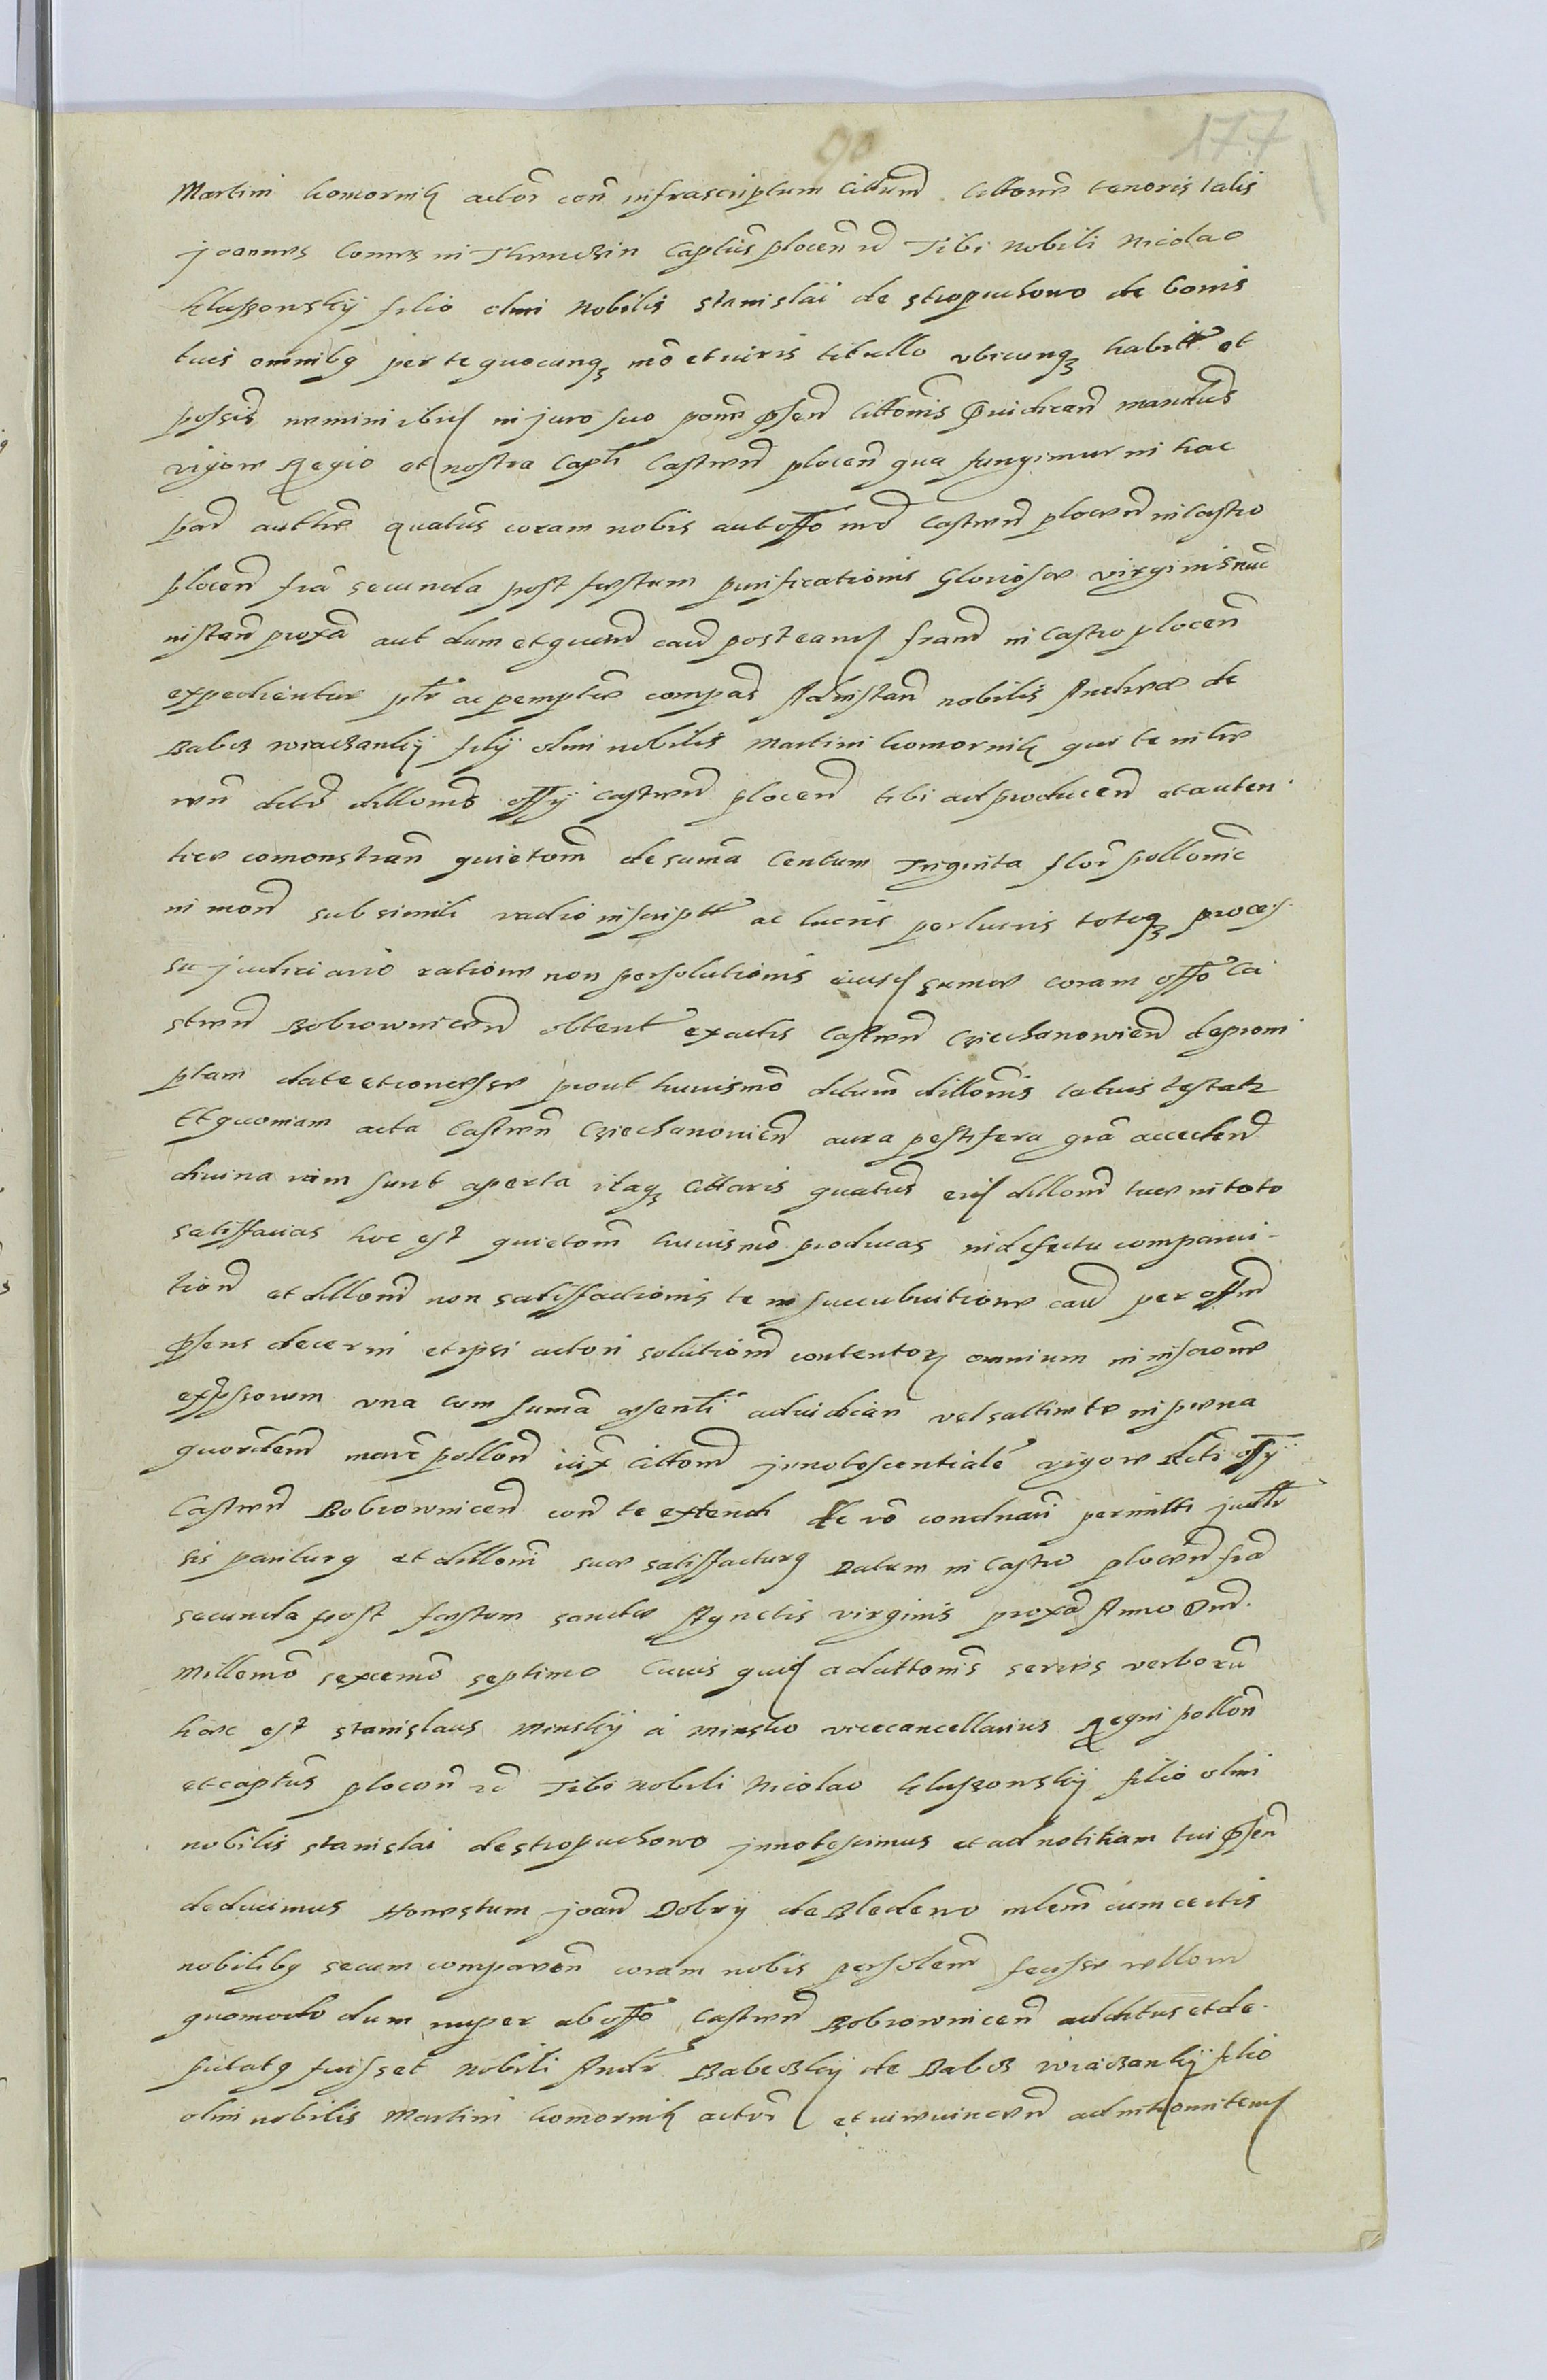 90
177
Martini Komornik actoř coñ infrascriptum Citatum Citationis tenoris talis
Joannes Comes in Thenczin Captūs plocen̄ Tibi Nobili Nicolao
Klussowskij filio olim Nobilis Stanislai de Stropuchowo de bonis
tuis omnibq per te quocunq mō et iuris titullo vbicunq habitt et
possis nemini in juro suo pōne pñsen̄ Cittonis mandūs
vigore Regio et nostra Captī Castren̄ plocen̄ qua fungimur in hac
par̄ authe quatūs coram nobis aut offō Castren̄ plocen̄ in castro
plocen̄ fīa secunda post festum purificationis Gloriosæ virginis nūc
instan̄ proxā aut dum et quan̄ cau̅ posteaq in Castro plocen̄
expedientur ptr ac pempter compaš Ad instan̄ nobilis Andreæ de
Babez Wraczankij filij olim nobilis Martini komornik qui te intus
dillonis offij Castren̄ plocen̄ tibi ad producen̄ et auten
tice comonstran̄ quietom̄ de sumā Centum Triginta flor̄ pollonic̄
in mon̄ sub simili vadio inscriptt ac lucris perlucris totoq proces
su judiciario ratione non persolutionis eiusd sumæ coram offō Ca
stren̄ Bobrownicen̄ obtent exactis Castren̄ Cziechanowien̄ depromi
ptam date et concesse prout huiusmō dillonis latius testatr
Et quoniam acta Castren̄ Cziechanowien̄ aura pestifera grā acceden̄
diuina iam sunt aperta itaq Cittaris quatūs eid dillon̄ tuæ in toto
satisfacias hoc est quietom̄ huiusmō producas in defectu comparui-
tion̄ et dillon̄ non satisfactionis te in succubuitione cau̅ per offm̄
pñsens decerni et ipsi actori solution̄ contentor omnium in inscrōne
exprssorum vna cum sumā pñsenti adiudican̄ vel saltim te in pæna
quordem̄ marc̄ pollon̄ iux̄ Cittom̄ jnnotescentialē vigore dcti offij
Castren̄ Bobrownicen̄ con̄ te extendi de rō condnari permitti judtr
sis pariturq et dillonī suæ satisfacturq Datum in Castro plocen̄ frā
secunda post festum sanctæ Agnetis virginis proxā Anno Dni.
Millemō sexcemō septimo Cuius quid adcittonis series verborū
hæc est Stanislaus Minskij á Minsko vicecancellarius Regni pollon̄
et captūs plocen̄ Tibi nobili Nicolao Klussowskij filio olim
nobilis Stanislai de Stropuchowo jnnotescimus et ad notitiam tui pñsen̄
deducimus Honestum joan̄ Dobrij de Bledewo mlem̄ cum certis
nobilibq secum comparen̄ coram nobis persolem̄ fecisse rellom̄
quomodo dum nuper ab offō Castren̄ Bobrownicen̄ additus et de-
putatq fuisset Nobili Andr̄ Babeczkij de Babez Wraczankij filio
olim nobilis Martini komornik actoř et uirwincen̄ ad